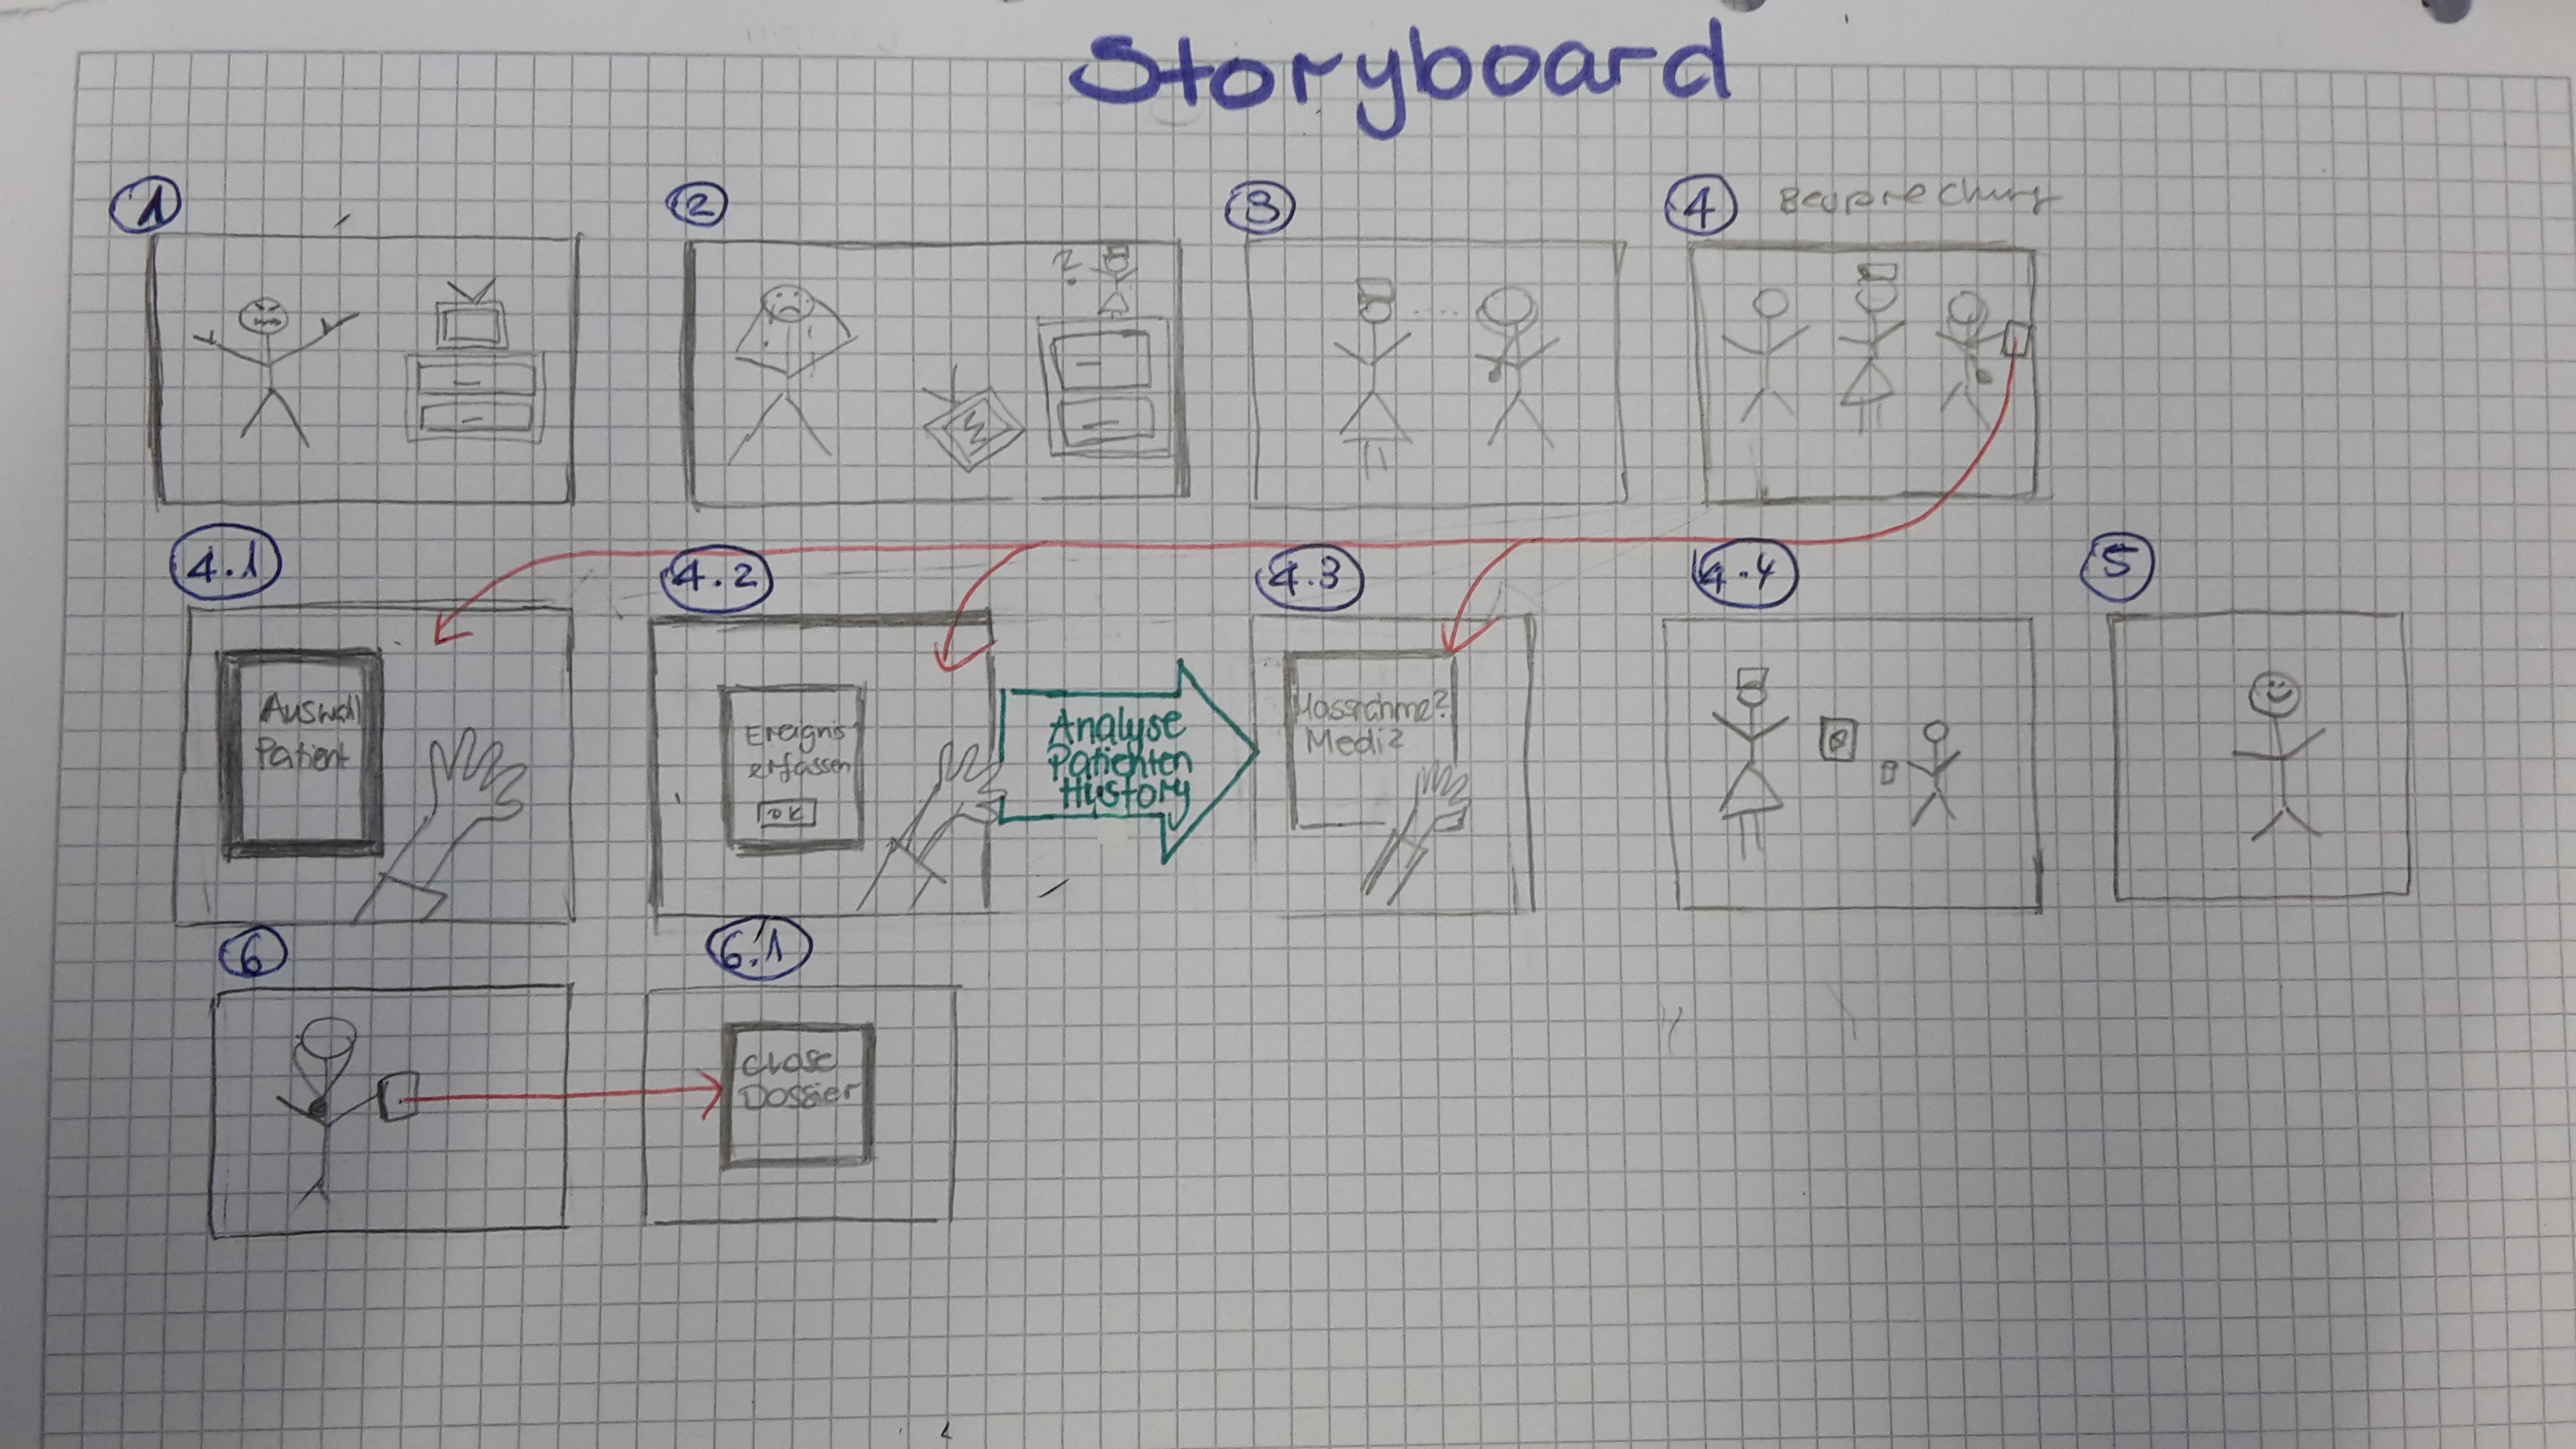 Storyboard
1
2
3
4 Besprechung
?
4.1
4.2
4.3
4.4
5
Auswahl
Patient
Ereignis
erfassen
OK
Analyse
Patienten
Hystory
Massnahme?
Medi?
6
6.1
Close
Dossier